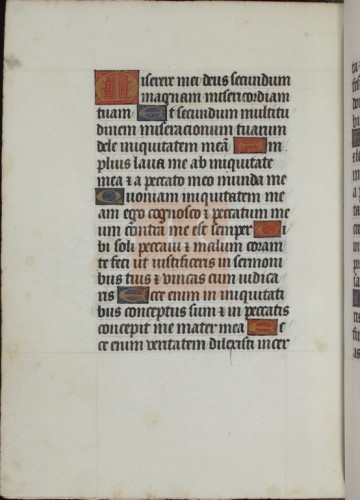 Miserere mei deus secundum
magnam misericordiam
tuam Et secundum multitu
dinem miseracionum tuarum
dele iniquitatem meā Am
plius laua me ab iniquitate
mea & a peccato meo munda me
Quoniam iniquitatem me
am ego cognosco & peccatum me
um contra me est semper Ti
bi soli peccaui & malum coram
te feci ut iustificeris in sermoni
bus tuis & vincas cum iudica
ris Ecce enim in iniquitati
bus conceptus sum & in peccatis
concepit me mater mea Ec
ce enim veritatem dilexisti incer